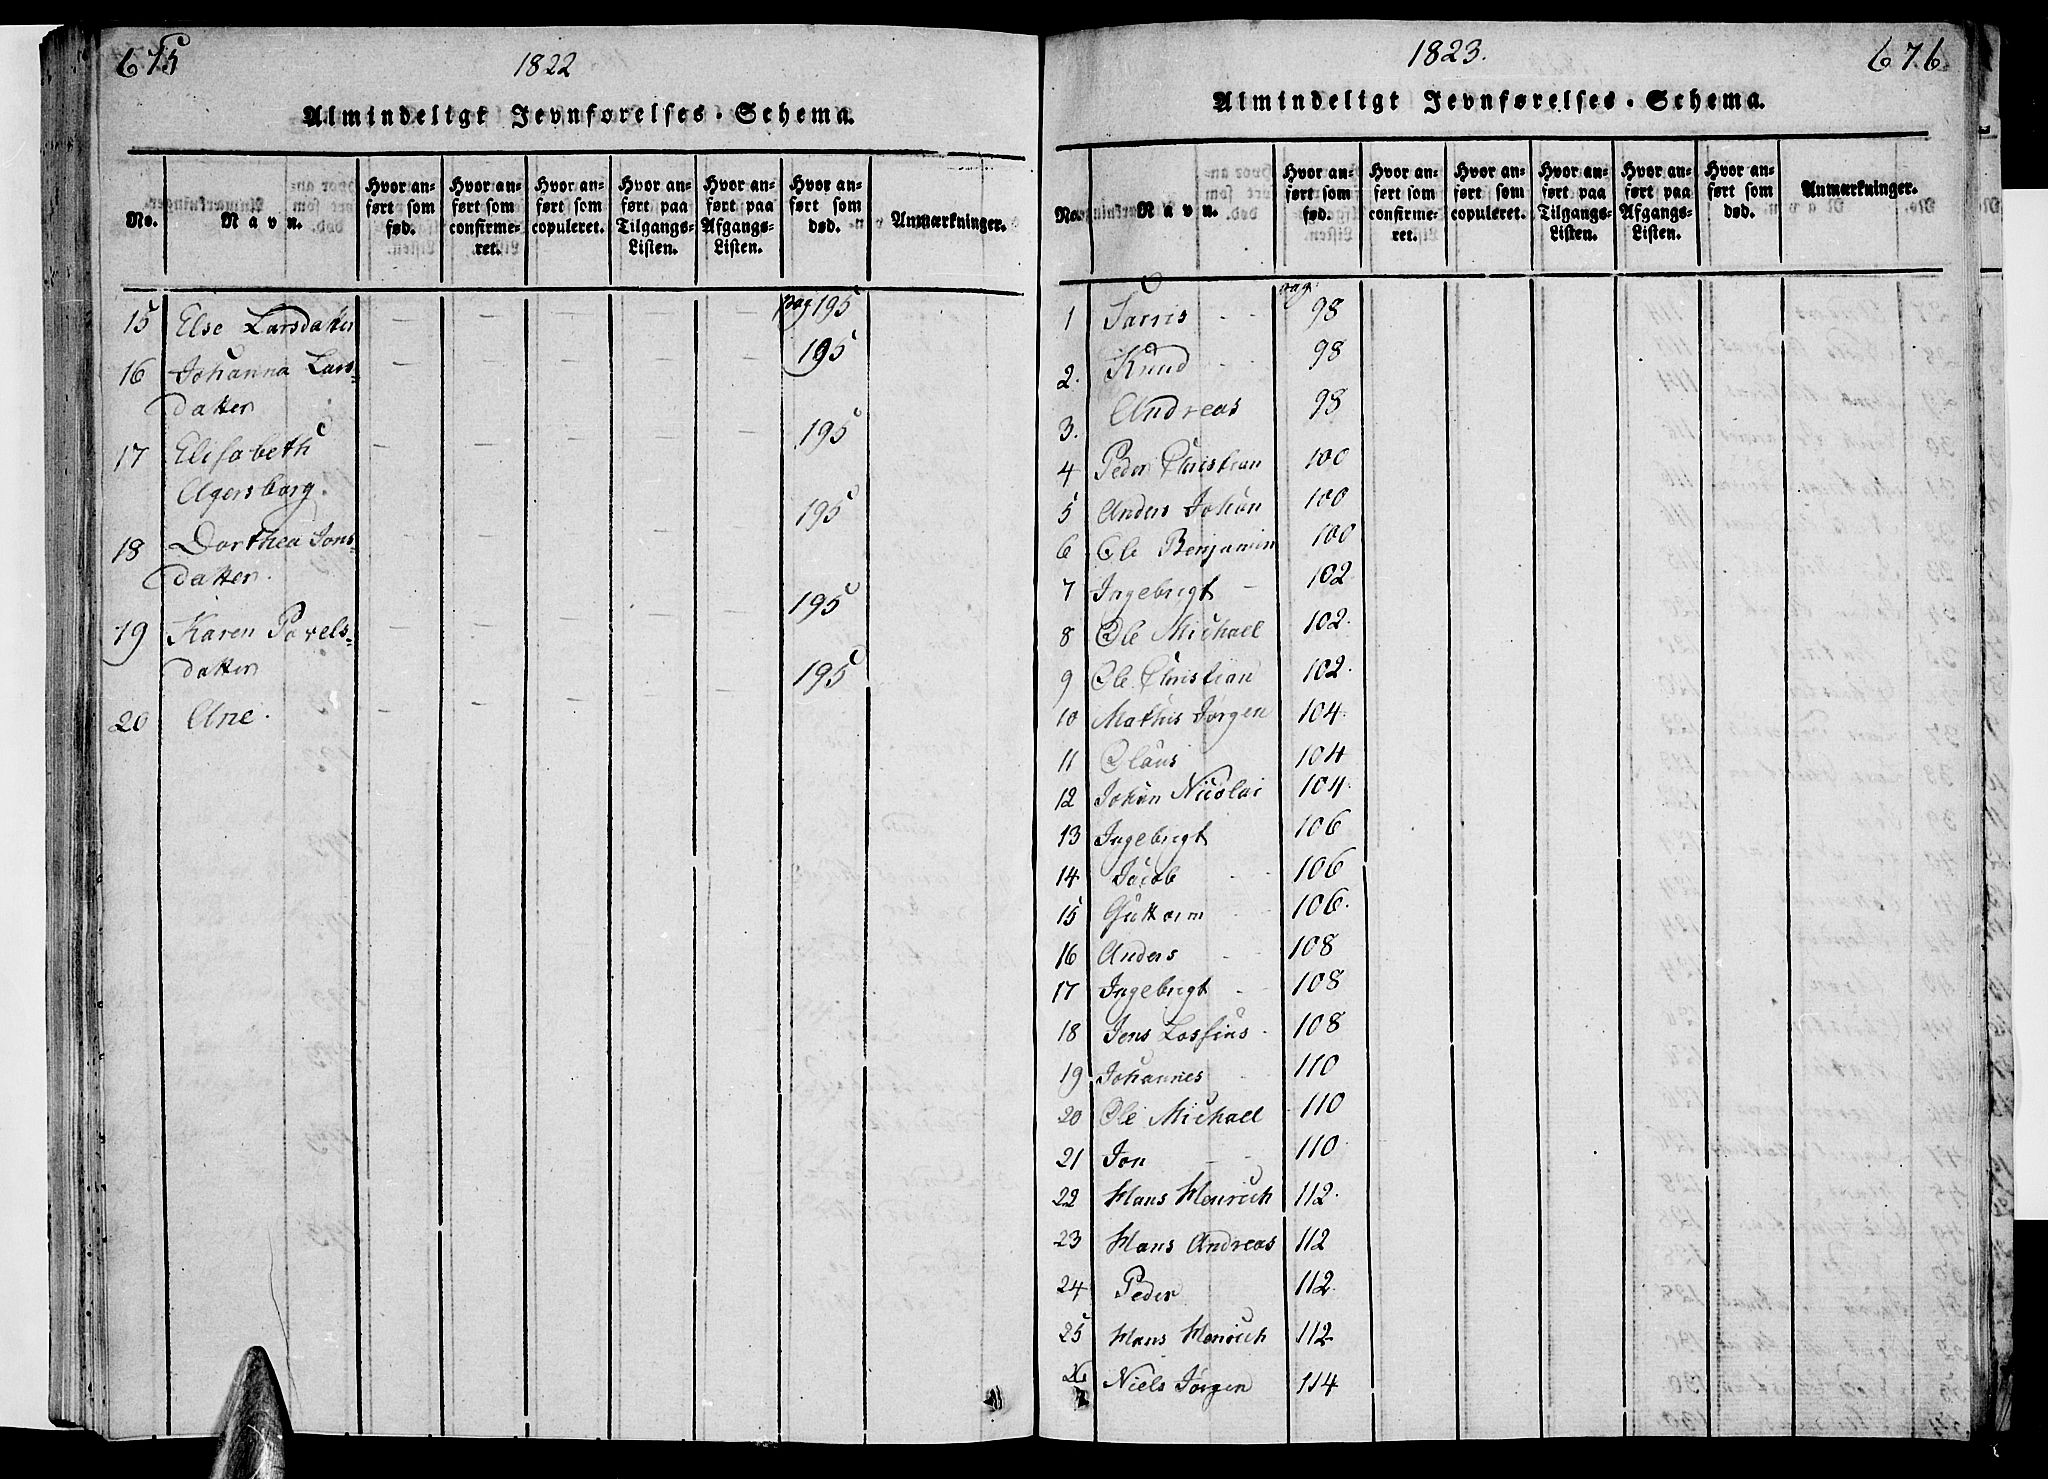 675
1822
Almindeligt Jevnførelses-Schema.
No.
Navn.
Hvor anført som fød.
Hvor anført som confirmeret.
Hvor anført som copuleret.
Hvor anført paa Tilgangs-Listen.
Hvor anført paa Afgangs-Listen.
Hvor anført som død.
Anmærkninger.
15 Else Larsdatter — — — — — pag 195
16 Johanna Lars- — — — — — 195
datter
17 Elisabeth — — — — — 195
Agersborg.
18 Dorthea Jons- — — — — — 195
datter.
19 Karen Povels- — — — — — 195
datter
20 Ane. — — — — — 195
1823.
676
Almindeligt Jevnførelses-Schema.
No.
Navn.
Hvor anført som fød.
Hvor anført som confirmeret.
Hvor anført som copuleret.
Hvor anført paa Tilgangs-Listen.
Hvor anført paa Afgangs-Listen.
Hvor anført som død.
Anmærkninger.
pag:
1 98
2. Knud 98
3. Andreas 98
4 Peder Christian 100
5 Anders Johan 100
6 Ole Benjamin 100
7 Ingebrigt 102
8 Ole Michael 102.
9 Ole Christian 102.
10 Mathis Jørgen 104.
11 Olaus 104
12 Johan Nicolai 104.
13 Ingebrigt 106
14 Jacob 106
15 Guttorm 106.
16 Anders 108
17 Ingebrigt 108
18 Jens Lossius 108
19 Johannes 110
20 Ole Michael 110
21 Jon 110
22 Hans Henrich 112.
23 Hans Andreas 112
24 Peder 112
25 Hans Henrich 112
26 Niels Jørgen 114